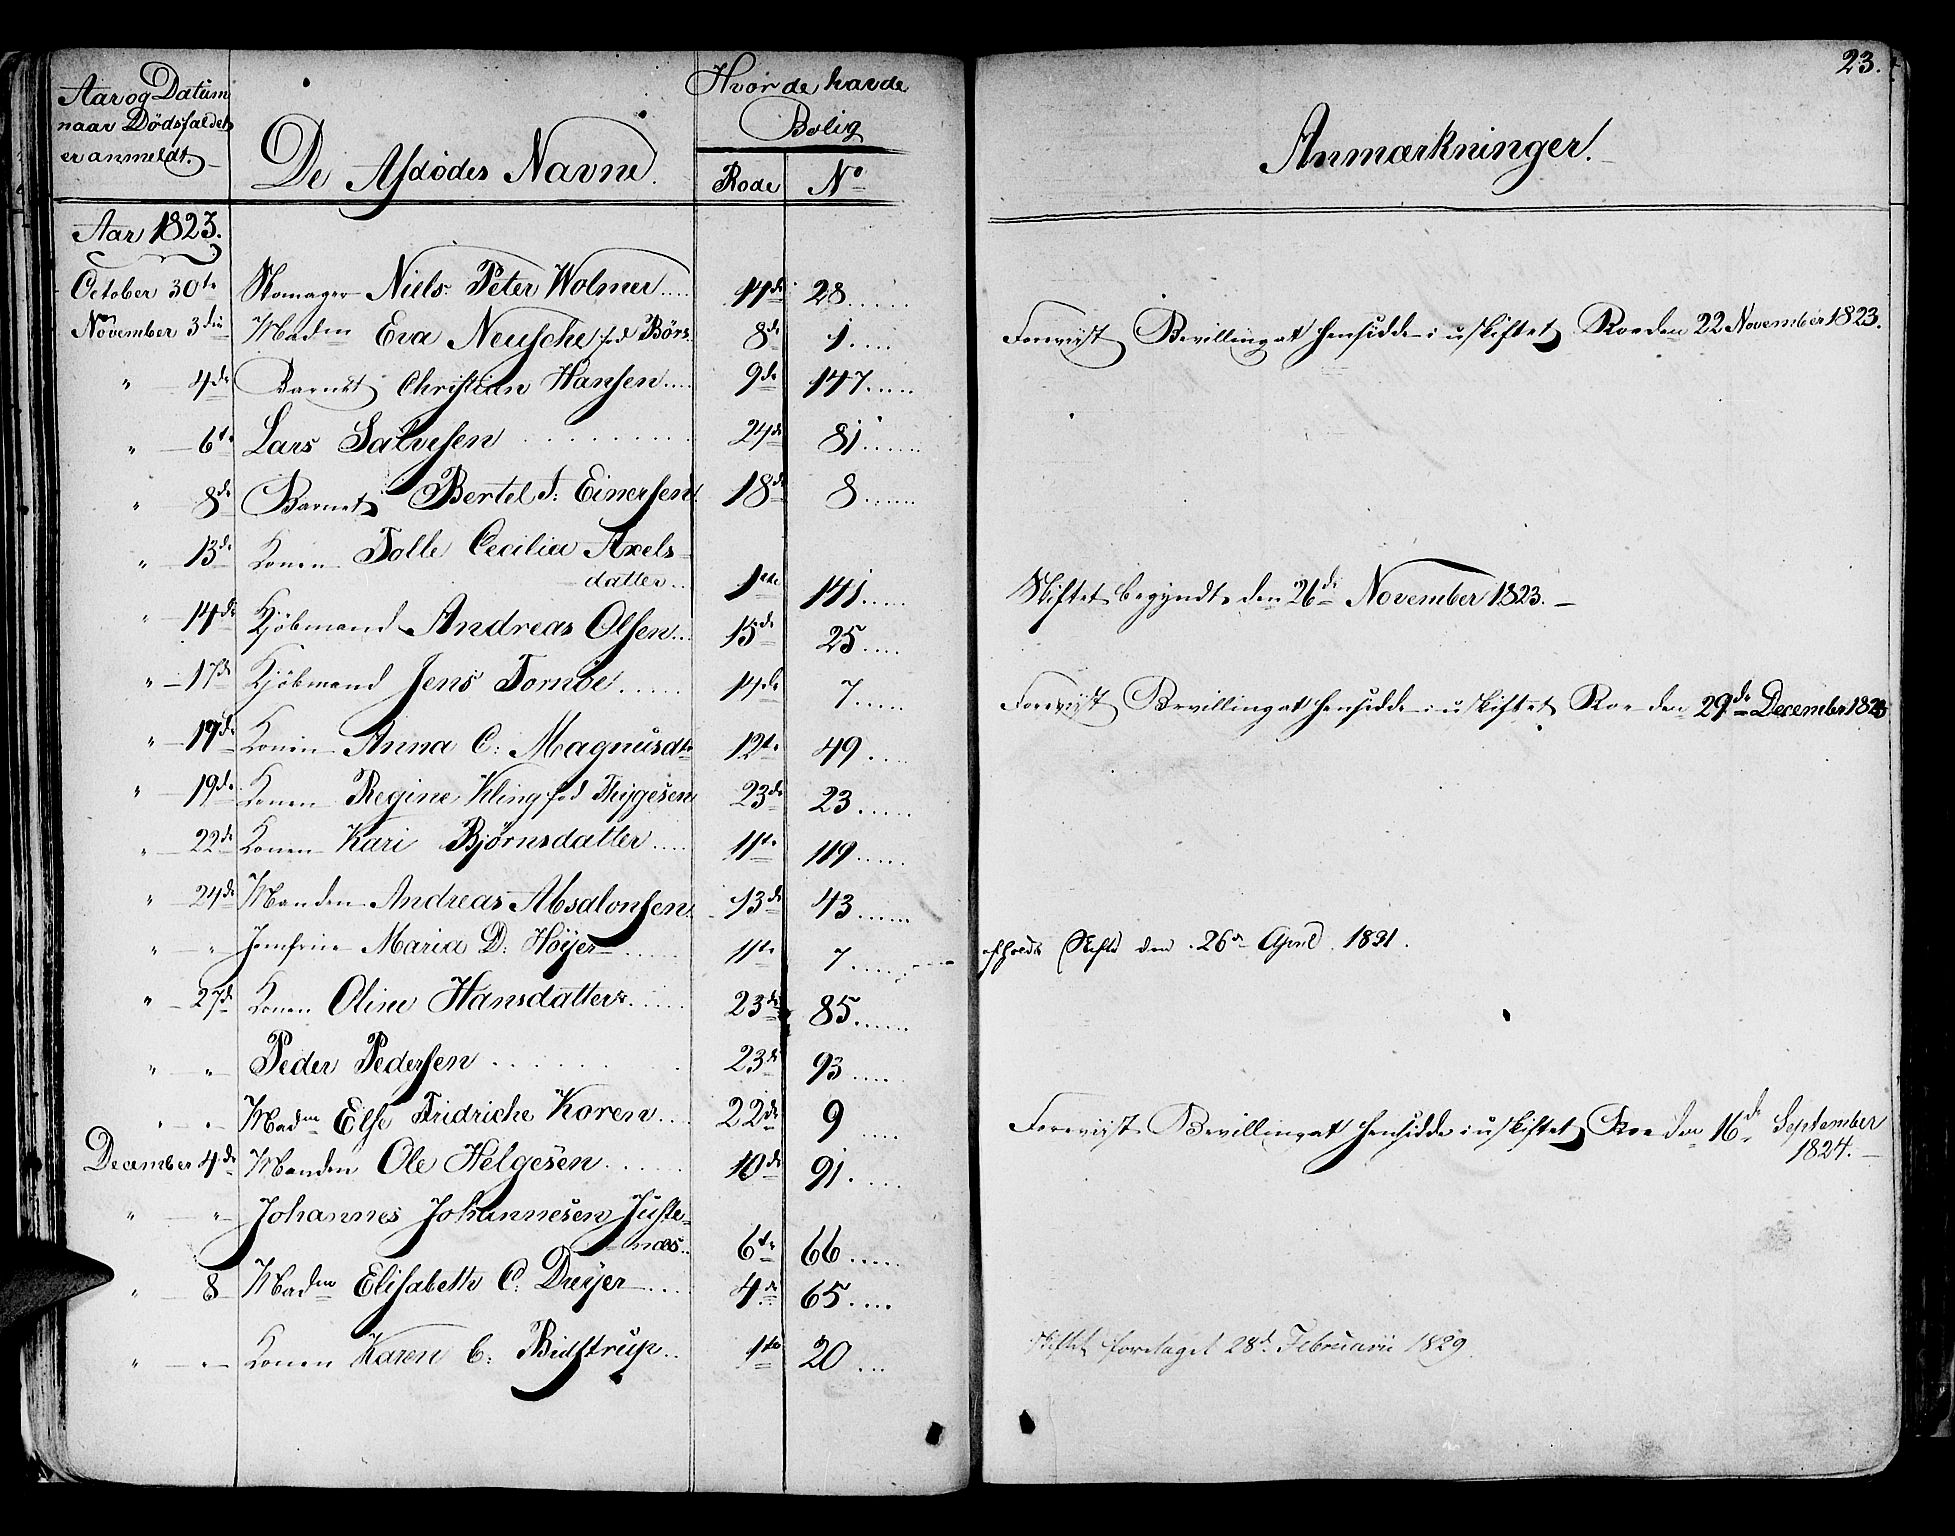 23.
Aar og Datum
naar Dödsfaldet
er anmeldt.
De Afdödes Navne.
Hvor de havde
Bolig
Rode No
Anmærkninger.
Aar 1823.
October 30te Skomager Niels Peter Wolmer 14de 28
November 3die Madm Eva Neusche fød Börs 8de 1 Foreviist Bevilling at hensidde i uskiftet Boe den 22 November 1823.
" 4de Barnet Christian Hansen 9de 147
" 6te Lars Salvesen 24de 81
" 8de Barnet Bertel J: Einersen 18de 8
" 13de Konen Tolle Cecilia Axels-
datter 1ste 141 Skiftet begyndt den 26de November 1823.
" 14de Kjöbmand Andreas Olsen 15de 25
" 17de Kjöbmand Jens Tornöe 14de 7 Foreviist Bevilling at hensidde i uskiftet Boe den 29de December 1823
" 19de Konen Anna C: Magnusdtr 12te 49
" 19de Konen Regine Kling fød Thygesen 23de 23
" 22de Konen Kari Bjørnsdatter 11te 119
" 24de Manden Andreas Absalonsen 13de 43
" " Jomfrue Maria D: Höyer 11te 7 Skifte den 26de April 1831.
" 27de Konen Oline Hansdatter 23de 85
" " Peder Pedersen 23de 93
" " Madm Else Fridriche Koren 22de 9 Foreviist Bevilling at hensidde i uskiftet Boe den 16de September
1824.
December 4de Manden Ole Helgesen 10de 91
" " Johannes Johannesen Juste-
næs 6te 66
" 8 Madm Elisabeth C. Dreyer 4de 65
" " Konen Karen C: Bidstrup 1ste 20 Skiftet foretaget 28de Februarii 1829.